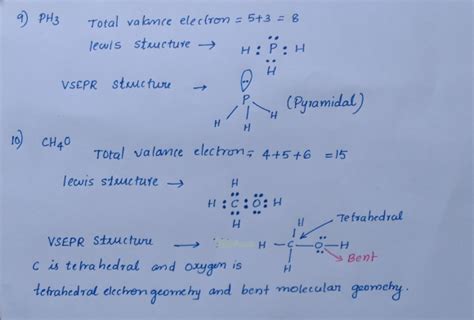 9) PH3 Total valance electron = 5+3 = 8
lewis structure → H : P : H
H
VSEPR structure →
P
H H H
(Pyramidal)
10) CH4O
Total valance electron = 4+5+6 =15
lewis structure →
H
H : C : O : H
H
VSEPR structure →
H
H – C – O – H
H
Tetrahedral
Bent
C is tetrahedral and oxygen is
tetrahedral electron geometry and bent molecular geometry.